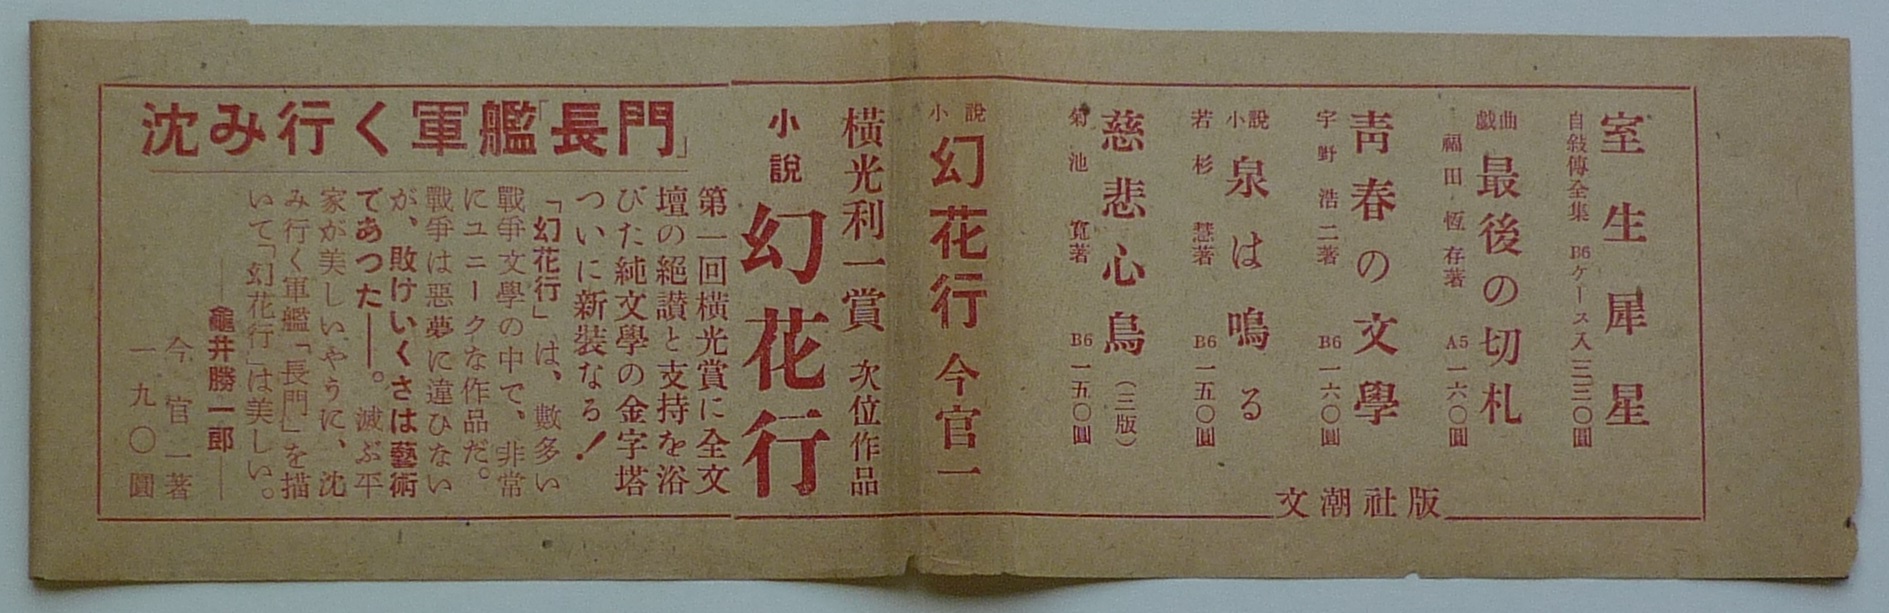 室生犀星
自敍傳全集 B6ケース入 三三〇圓
戯曲 最後の切札
福田恆存著 A5 一六〇圓
靑春の文學
宇野浩二著 B6 一六〇圓
小説 泉は鳴る
若杉慧著 B6 一五〇圓
慈悲心鳥 (三版)
菊池寛著 B6 一五〇圓
文潮社版
小説 幻花行 今官一
橫光利一賞 次位作品
小說 幻花行
沈み行く軍艦「長門」
第一回橫光賞に全文
壇の絕讃と支持を浴
びた純文學の金字塔
ついに新裝なる!
「幻花行」は、數多い
戰爭文學の中で、非常
にユニークな作品だ。
戰爭は惡夢に違ひない
が、敗けいくさは藝術
であつた——。滅ぶ平
家が美しいやうに、沈
み行く軍艦「長門」を描
いて「幻花行」は美しい。
——龜井勝一郎——
今官一著
一九〇圓